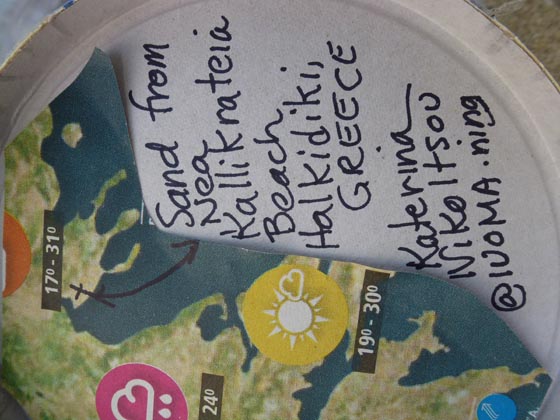 Sand from
Nea
Kallikrateia
Beach
Halkidiki,
GREECE
Katerina
Nikoltsou
@IUOMA.ning
17° - 31°
19° - 30°
24°